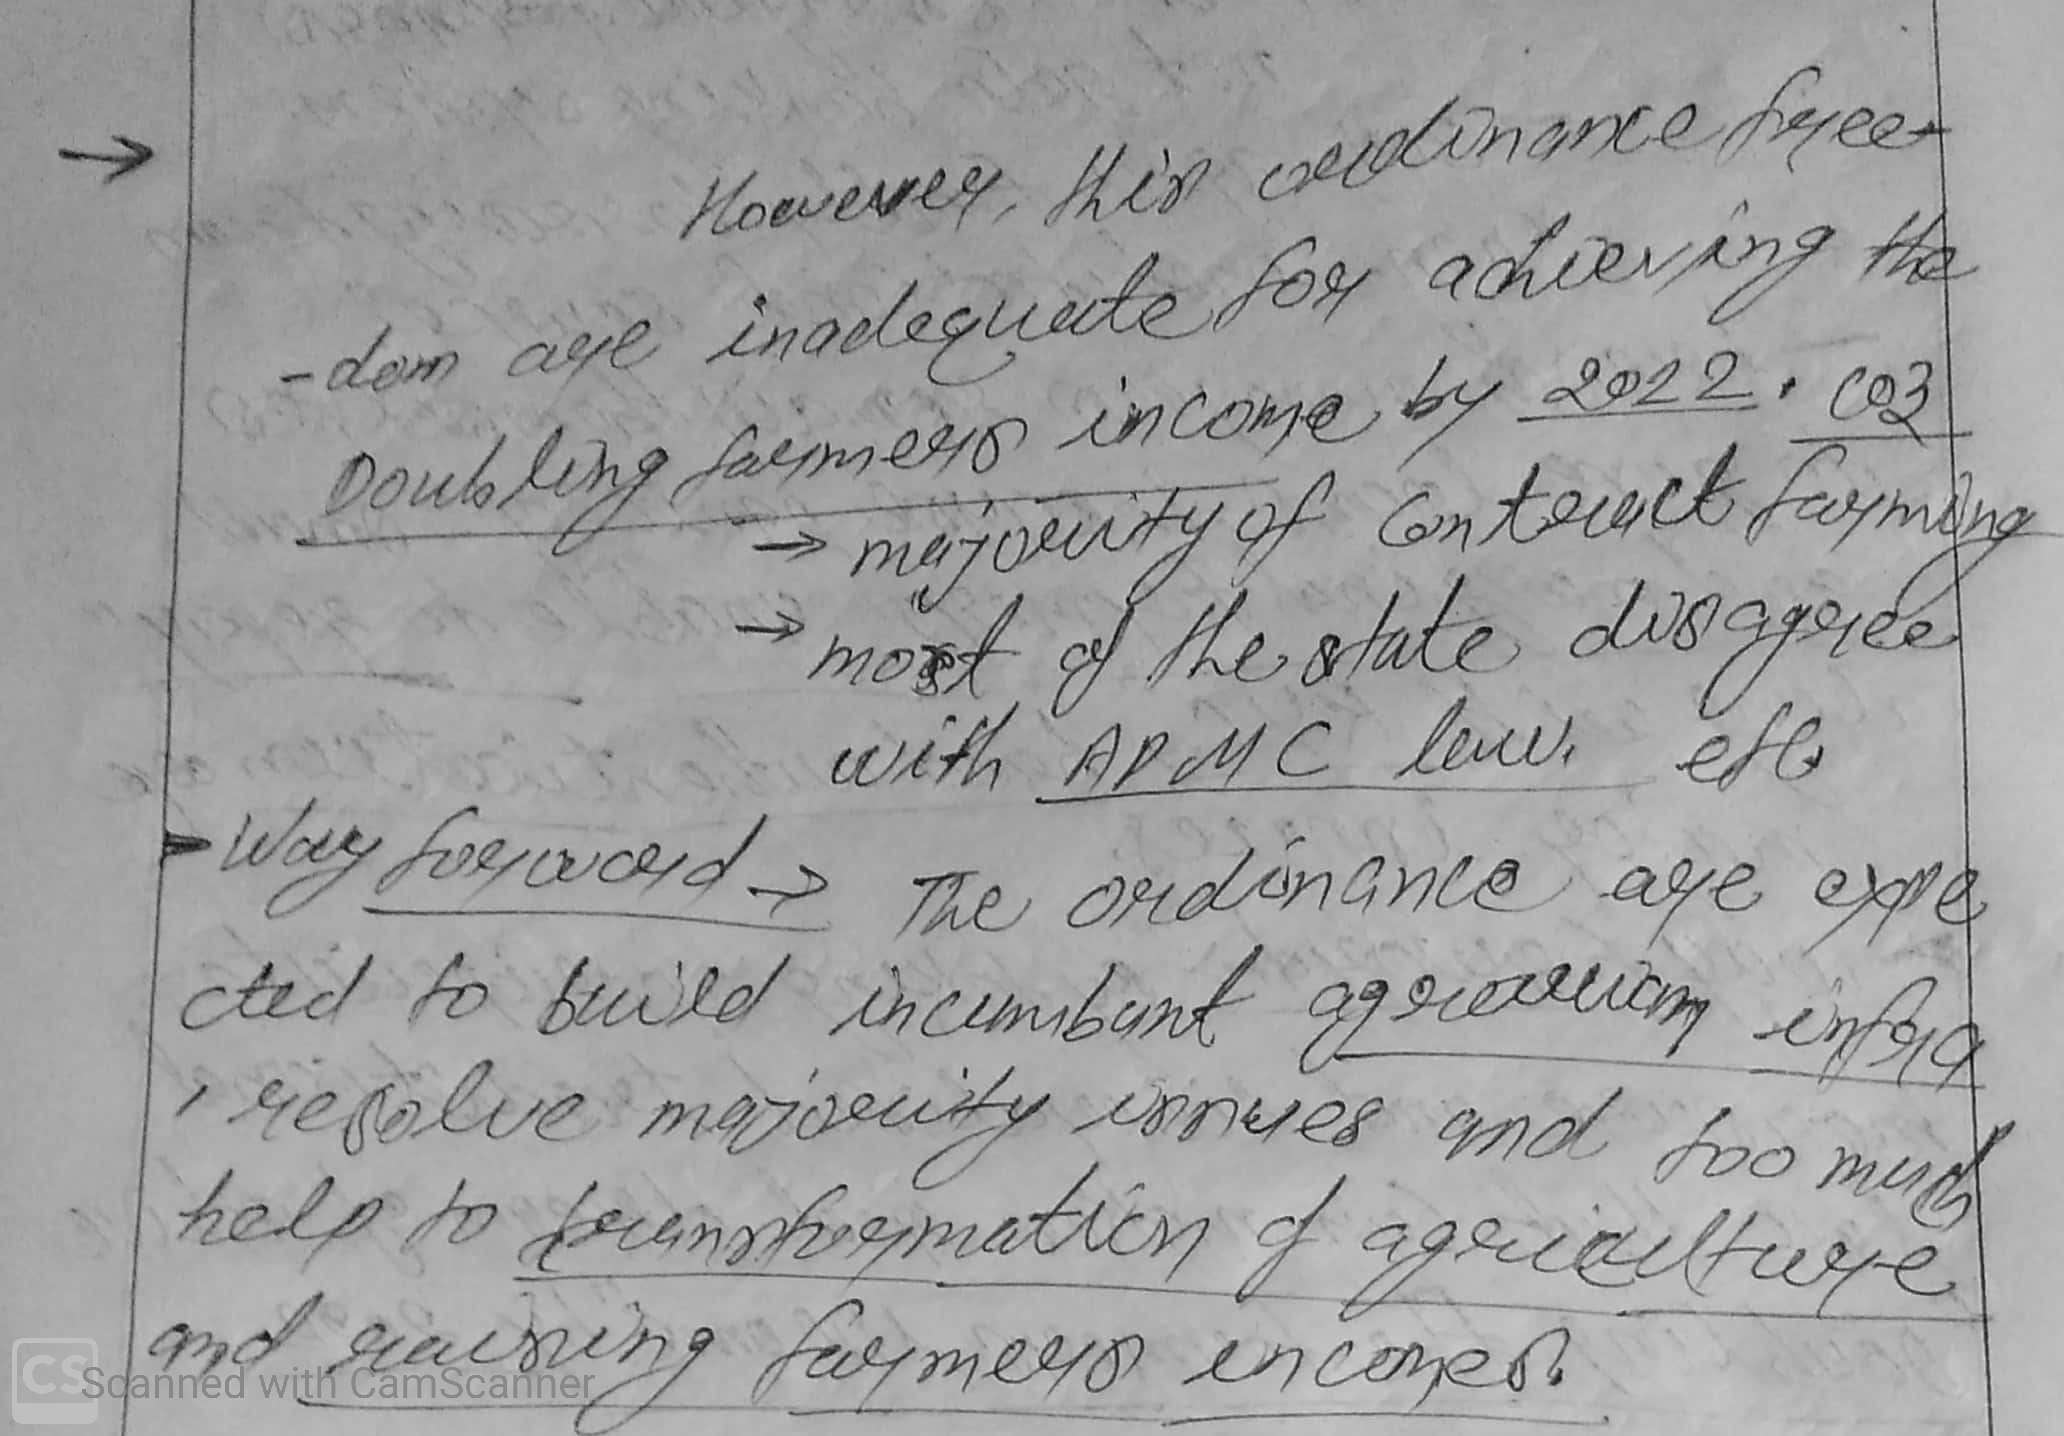 → However, this ordinance free-
-dom are inadequate for achieving the
Doubling farmers income by 2022. COZ
→ majority of contract farming
→ most of the state disaggree
with APMC law. etc
Way forword → The ordinance are expe
cted to build incumbant agrarian infra
, resolve majority issues and too much
help to transformation of agriculture
and raising farmers incomes.
CS Scanned with CamScanner